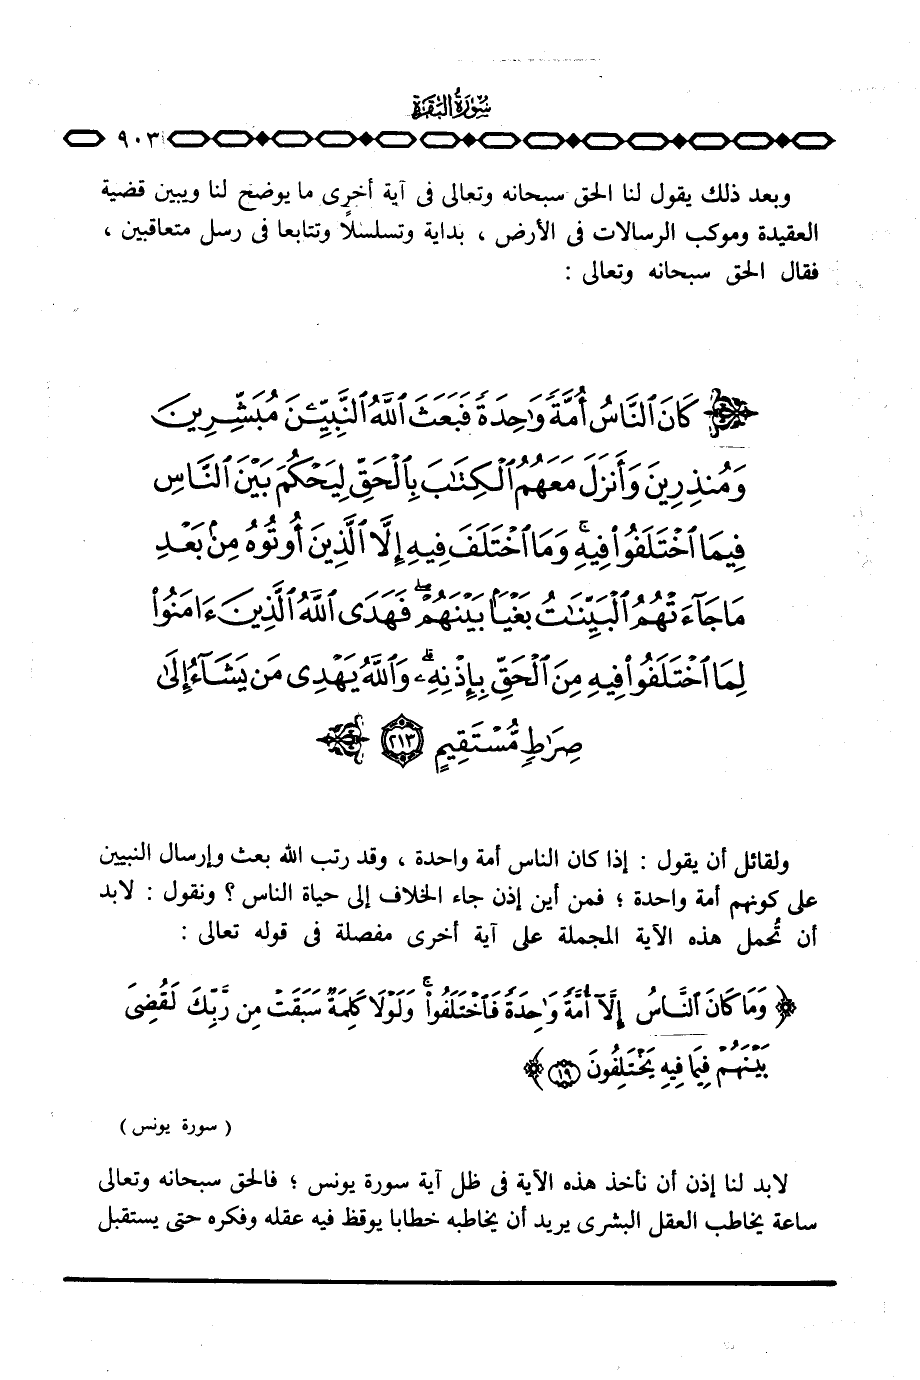 سورة البقرة
٩٠٣
وبعد ذلك يقول لنا الحق سبحانه وتعالى فى آية أخرى ما يوضح لنا ويبين قضية
العقيدة وموكب الرسالات فى الأرض ، بداية وتسلسلاً وتتابعا فى رسل متعاقبين ،
فقال الحق سبحانه وتعالى :
كَانَ ٱلنَّاسُ أُمَّةً وَٰحِدَةً فَبَعَثَ ٱللَّهُ ٱلنَّبِيِّـۧنَ مُبَشِّرِينَ
وَمُنذِرِينَ وَأَنزَلَ مَعَهُمُ ٱلْكِتَٰبَ بِٱلْحَقِّ لِيَحْكُمَ بَيْنَ ٱلنَّاسِ
فِيمَا ٱخْتَلَفُوا۟ فِيهِ ۚ وَمَا ٱخْتَلَفَ فِيهِ إِلَّا ٱلَّذِينَ أُوتُوهُ مِنۢ بَعْدِ
مَا جَآءَتْهُمُ ٱلْبَيِّنَٰتُ بَغْيًۢا بَيْنَهُمْ ۖ فَهَدَى ٱللَّهُ ٱلَّذِينَ ءَامَنُوا۟
لِمَا ٱخْتَلَفُوا۟ فِيهِ مِنَ ٱلْحَقِّ بِإِذْنِهِۦ ۗ وَٱللَّهُ يَهْدِى مَن يَشَآءُ إِلَىٰ
صِرَٰطٍ مُّسْتَقِيمٍ ٢١٣
ولقائل أن يقول : إذا كان الناس أمة واحدة ، وقد رتب الله بعث وإرسال النبيين
على كونهم أمة واحدة ؛ فمن أين إذن جاء الخلاف إلى حياة الناس ؟ ونقول : لابد
أن تُحمل هذه الآية المجملة على آية أخرى مفصلة فى قوله تعالى :
﴿ وَمَا كَانَ ٱلنَّاسُ إِلَّآ أُمَّةً وَٰحِدَةً فَٱخْتَلَفُوا۟ ۚ وَلَوْلَا كَلِمَةٌ سَبَقَتْ مِن رَّبِّكَ لَقُضِىَ
بَيْنَهُمْ فِيمَا فِيهِ يَخْتَلِفُونَ ١٩ ﴾
( سورة يونس )
لابد لنا إذن أن نأخذ هذه الآية فى ظل آية سورة يونس ؛ فالحق سبحانه وتعالى
ساعة يخاطب العقل البشرى يريد أن يخاطبه خطابا يوقظ فيه عقله وفكره حتى يستقبل